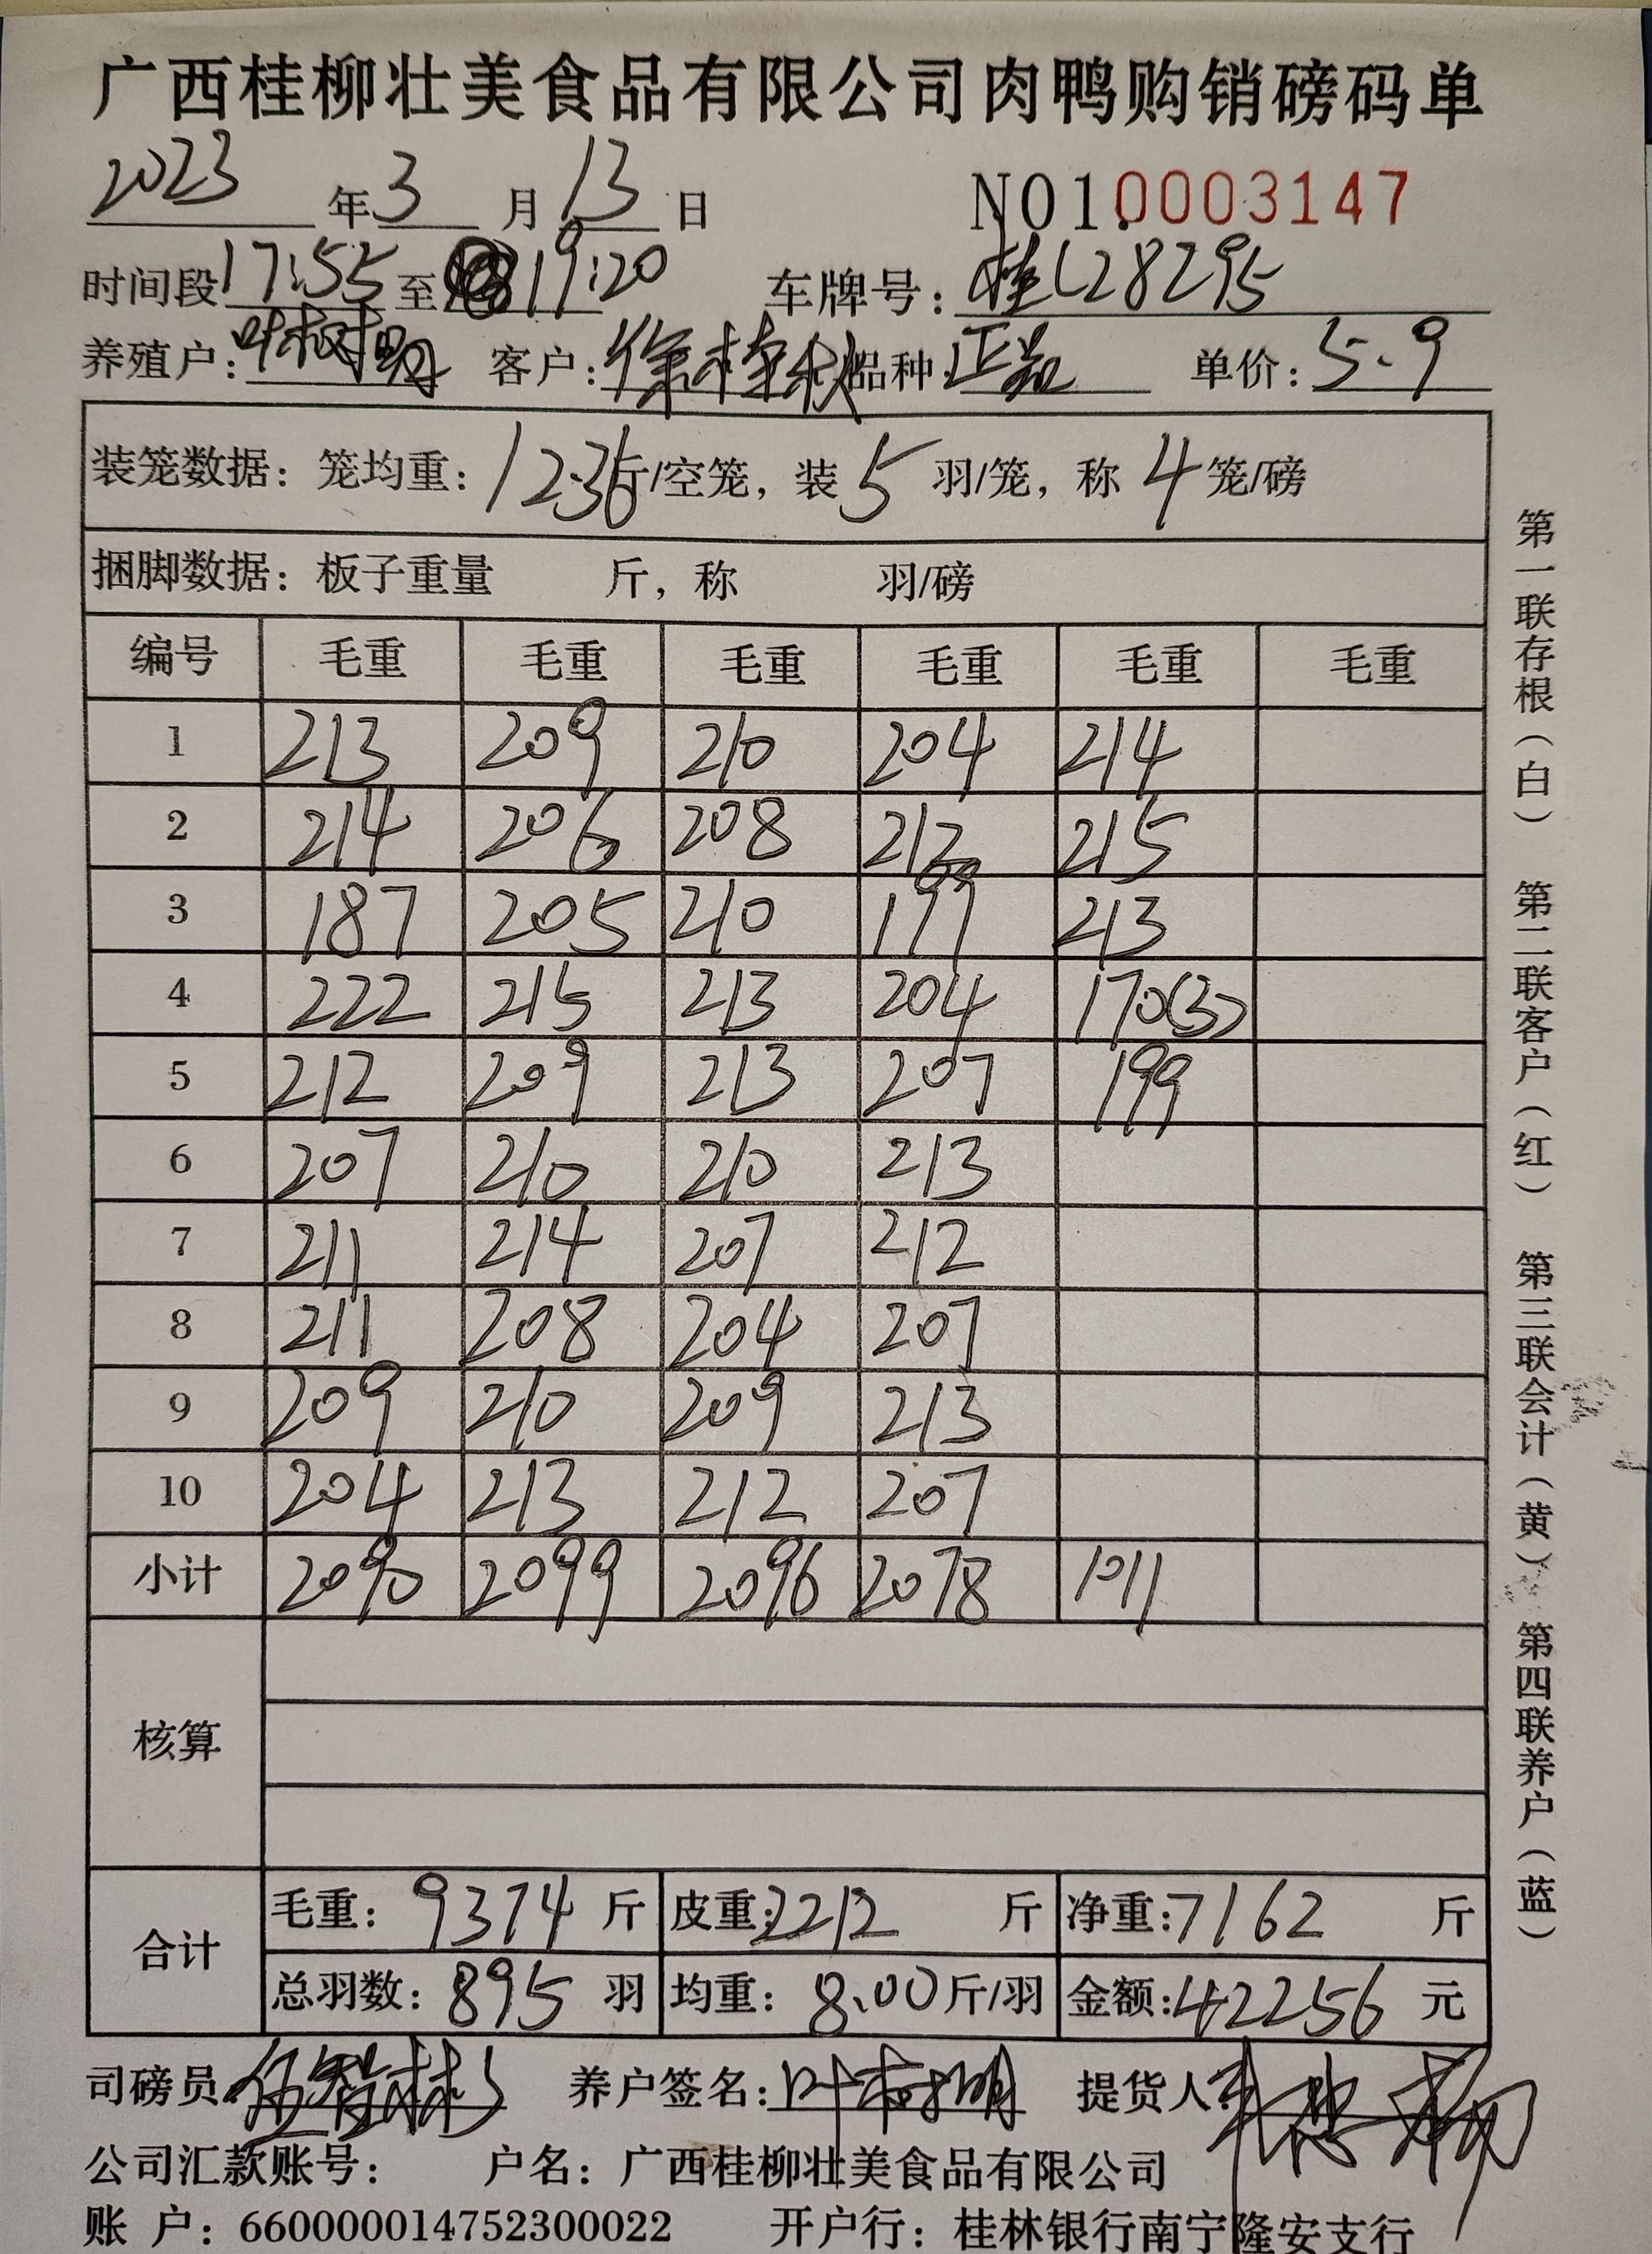 广西桂柳壮美食品有限公司肉鸭购销磅码单
2023 年 3 月 13 日 NO1.0003147
时间段 17:55 至 19:20 车牌号: 桂L28295
养殖户: 叶树明 客户: 徐桂秋 品种: 正品 单价: 5.9
装笼数据: 笼均重: 12.36 斤/空笼, 装 5 羽/笼, 称 4 笼/磅
捆脚数据: 板子重量 斤, 称 羽/磅
编号 毛重 毛重 毛重 毛重 毛重 毛重
1 213 209 210 204 214
2 214 206 208 212 215
3 187 205 210 199 213
4 222 215 213 204 170(3)
5 212 209 213 207 199
6 207 210 210 213
7 211 214 207 212
8 211 208 204 207
9 209 210 209 213
10 204 213 212 207
小计 2090 2099 2096 2078 1011
核算
合计 毛重: 9374 斤 皮重: 2212 斤 净重: 7162 斤
总羽数: 895 羽 均重: 8.00 斤/羽 金额: 42256 元
司磅员: 养户签名: 叶树明 提货人:
公司汇款账号: 户名: 广西桂柳壮美食品有限公司
账 户: 660000014752300022 开户行: 桂林银行南宁隆安支行
第一联存根(白) 第二联客户(红) 第三联会计(黄) 第四联养户(蓝)